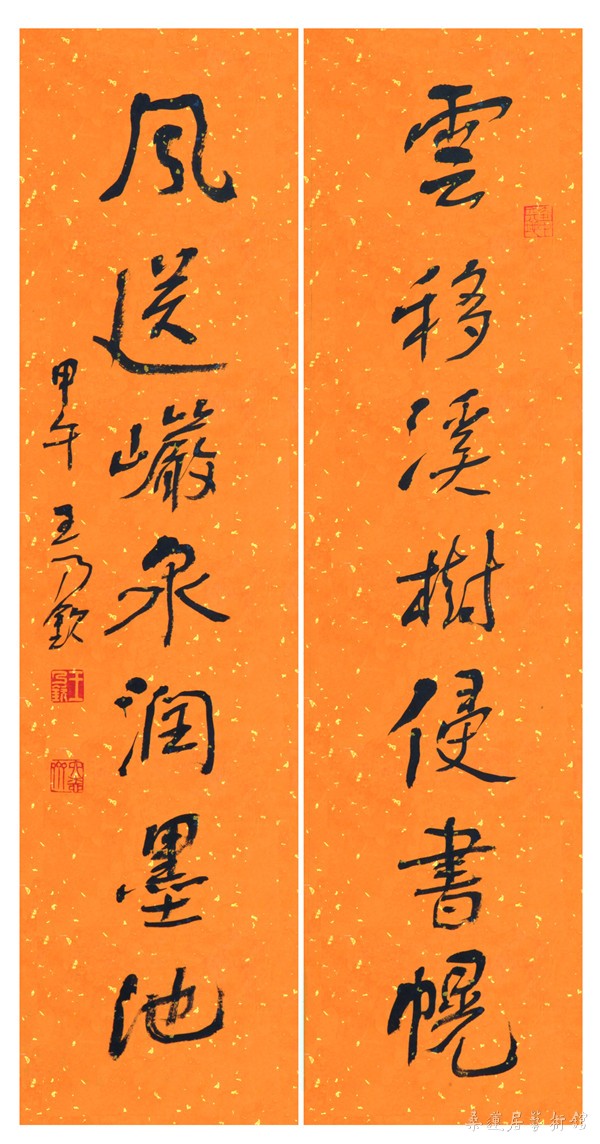 雲移溪樹侵書幌
風送巖泉潤墨池
甲午 王乃欽